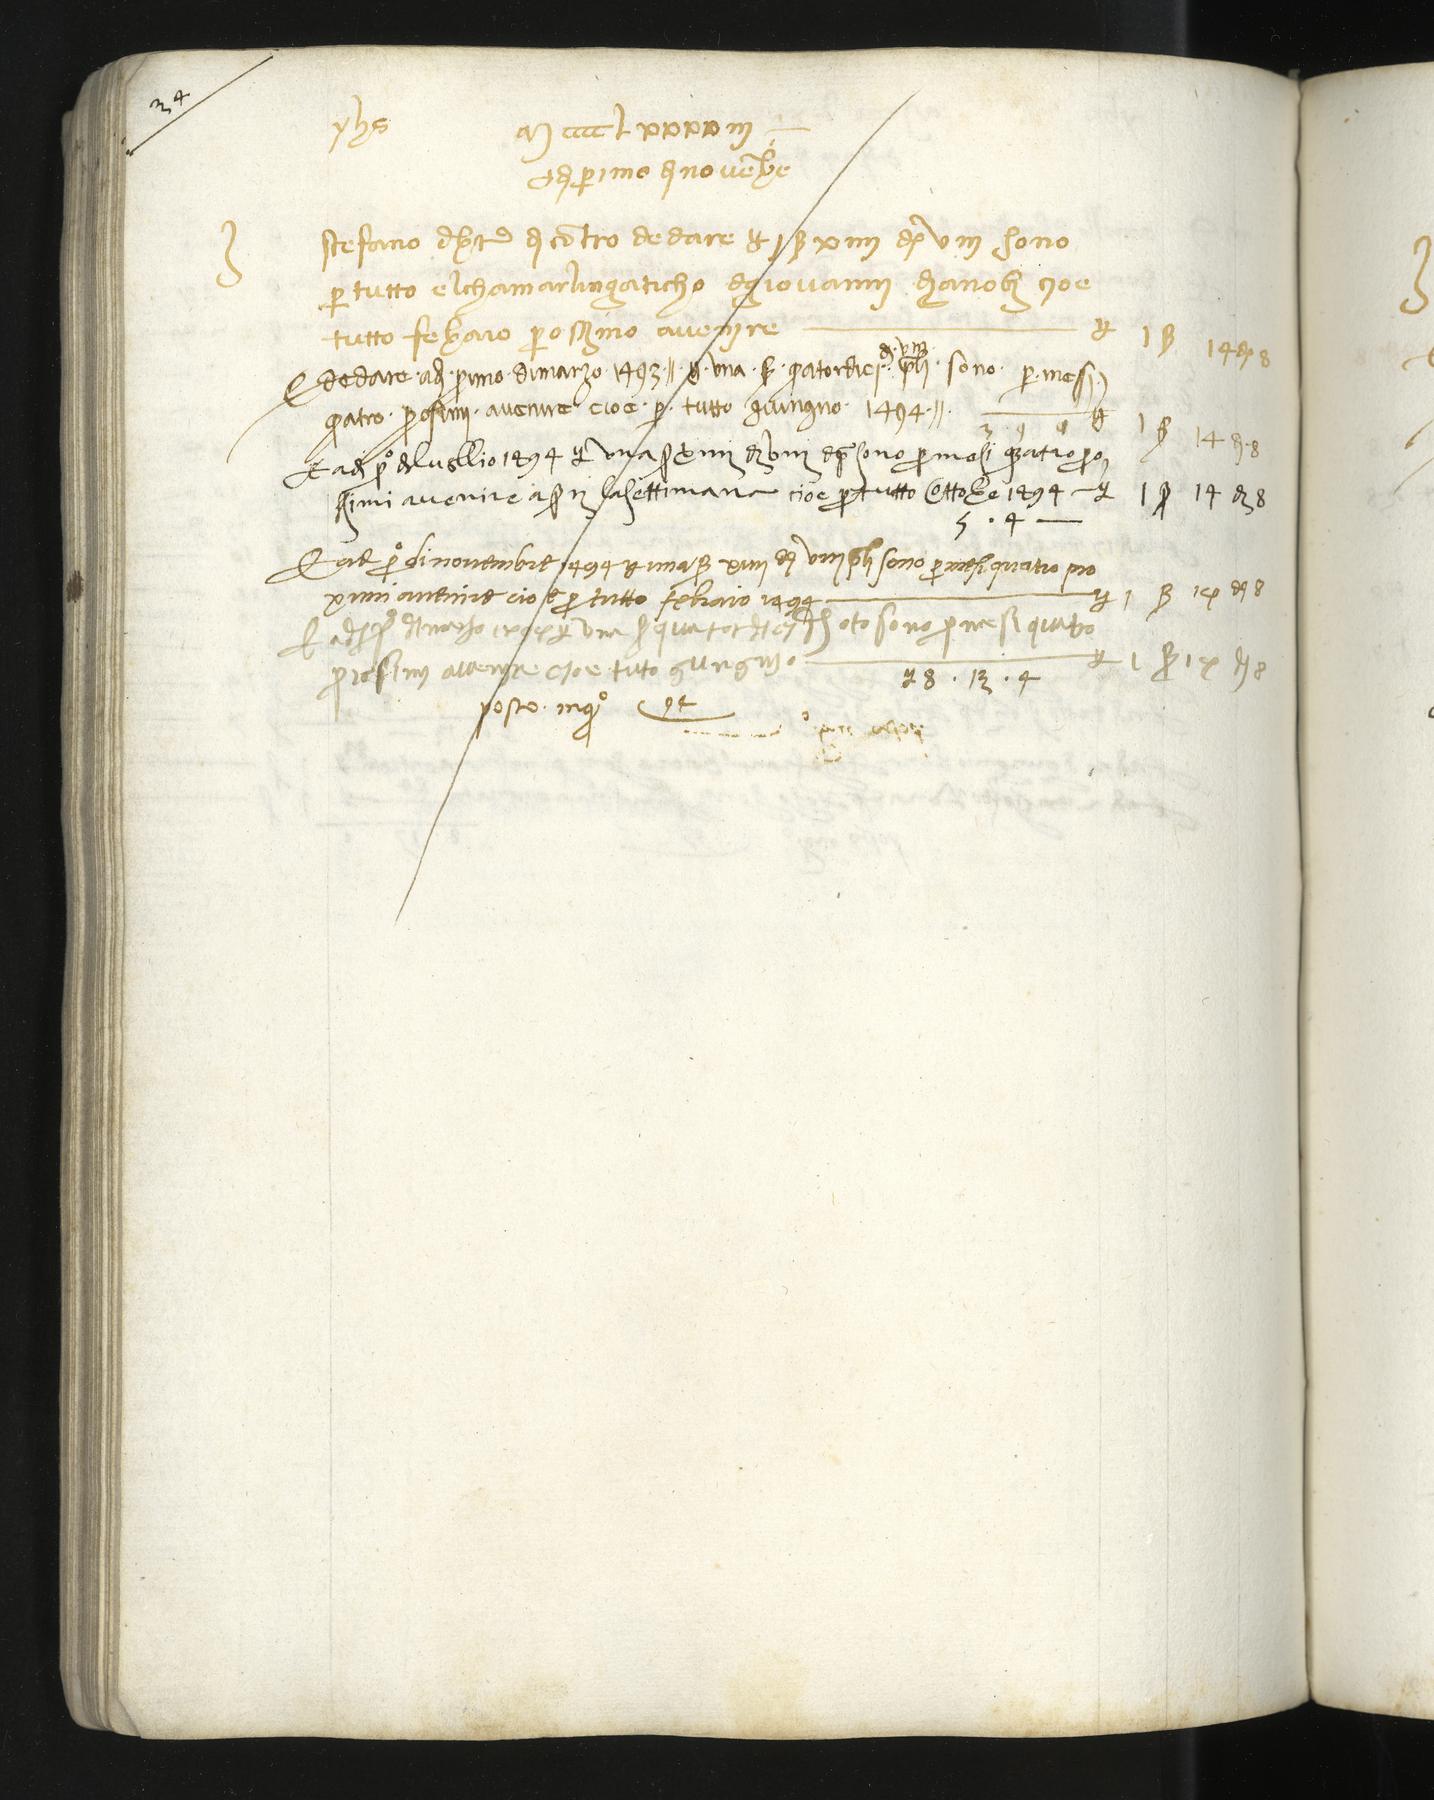 34
yhs MCCCCLXXXXIII
adi primo di novembre
stefano di contro de dare £ 1 ß xiiii d viii sono
per tutto el chamarlingaticho di giovanni cioe
tutto febraro prossimo avenire £ 1 ß 14 d 8
E de dare adi primo di marzo 1493 £ una ß quatordici d viii sono per mesi
quatro prosimi avenire cioe per tutto giungno 1494 £ 1 ß 14 d 8
3 9 4
E adi po di lugllio 1494 £ una ß xiiii d viii sono per mesi quatro pro
ssimi avenire la settimana cioe per tutto Ottobre 1494 £ 1 ß 14 d 8
5 . 4 —
E adi po di novembre 1494 £ una ß xiiii d viii sono per mesi quatro pro
ximi avenire cioe per tutto febraio 1494 £ 1 ß 14 d 8
E adi po di marzo £ una ß quatordici d oto sono per mesi quatro
prossimi avenire cioe tuto giungno £ 1 ß 14 d 8
£ 8 . 13 . 4
posto in qo 94